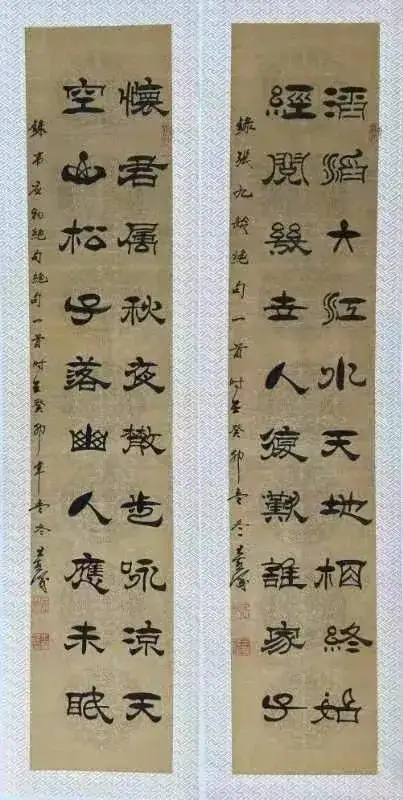 滔滔大江水天地相終始
經閱幾世人復歎誰家子
錄張九齡絕句一首時在癸卯冬
懷君属秋夜散步詠涼天
空山松子落幽人應未眠
錄韋應物絕句絕句一首時在癸卯年冬